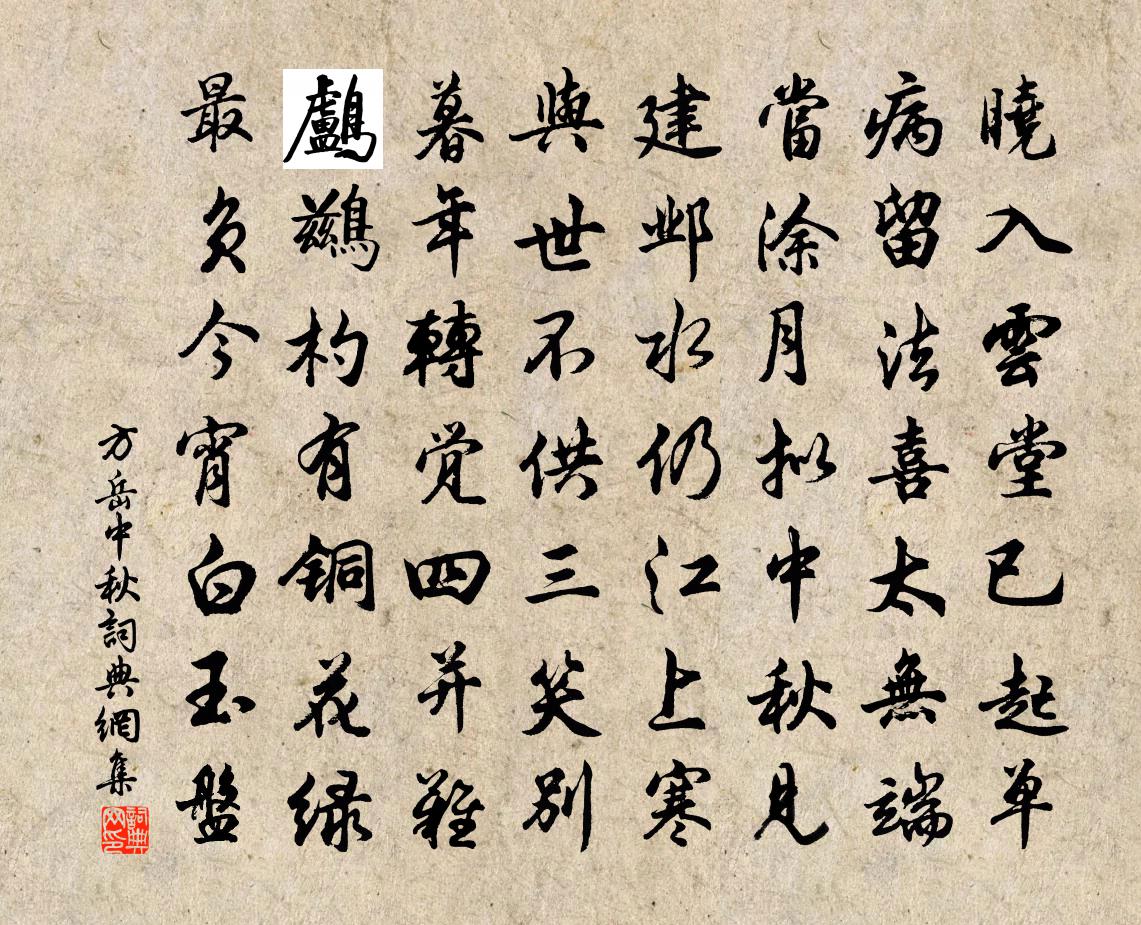 曉入雲堂已起单
病留法喜太無端
當涂月拟中秋見
建邺水仍江上寒
與世不供三笑別
暮年轉觉四并難
鸕鶿杓有銅花绿
最负今宵白玉盤
方岳中秋詞典網集
詞典网印